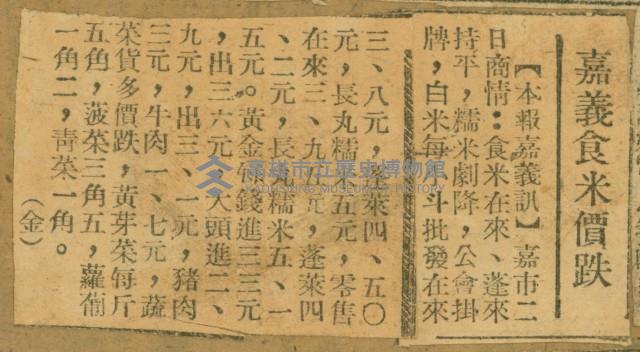 嘉義食米價跌
【本報嘉義訊】嘉市二
日商情：食米在來、蓬來
持平，糯米劇降，公會掛
牌，白米每斗批發在來
三、八元，蓬萊四、五〇
元，長丸糯五元，零售
在來三、九元，蓬萊四
、二元，長丸糯米五、一
五元。黃金每錢進三三元
，出三六元，大頭進二、
九元，出三、一元，豬肉
三元，牛肉一、七元，蔬
菜貨多價跌，黃芽菜每斤
五角，菠菜三角五，蘿蔔
一角二，青菜一角。
（金）
高雄市立歷史博物館
KAOHSIUNG MUSEUM OF HISTORY